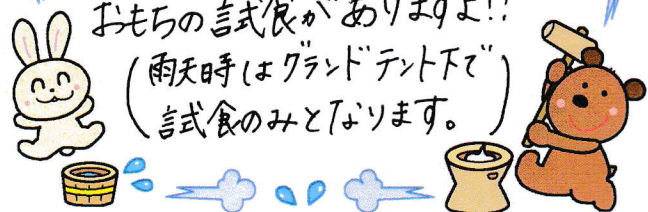 おもちの試食がありますよ!!
(雨天時はグランドテント下で
試食のみとなります。)